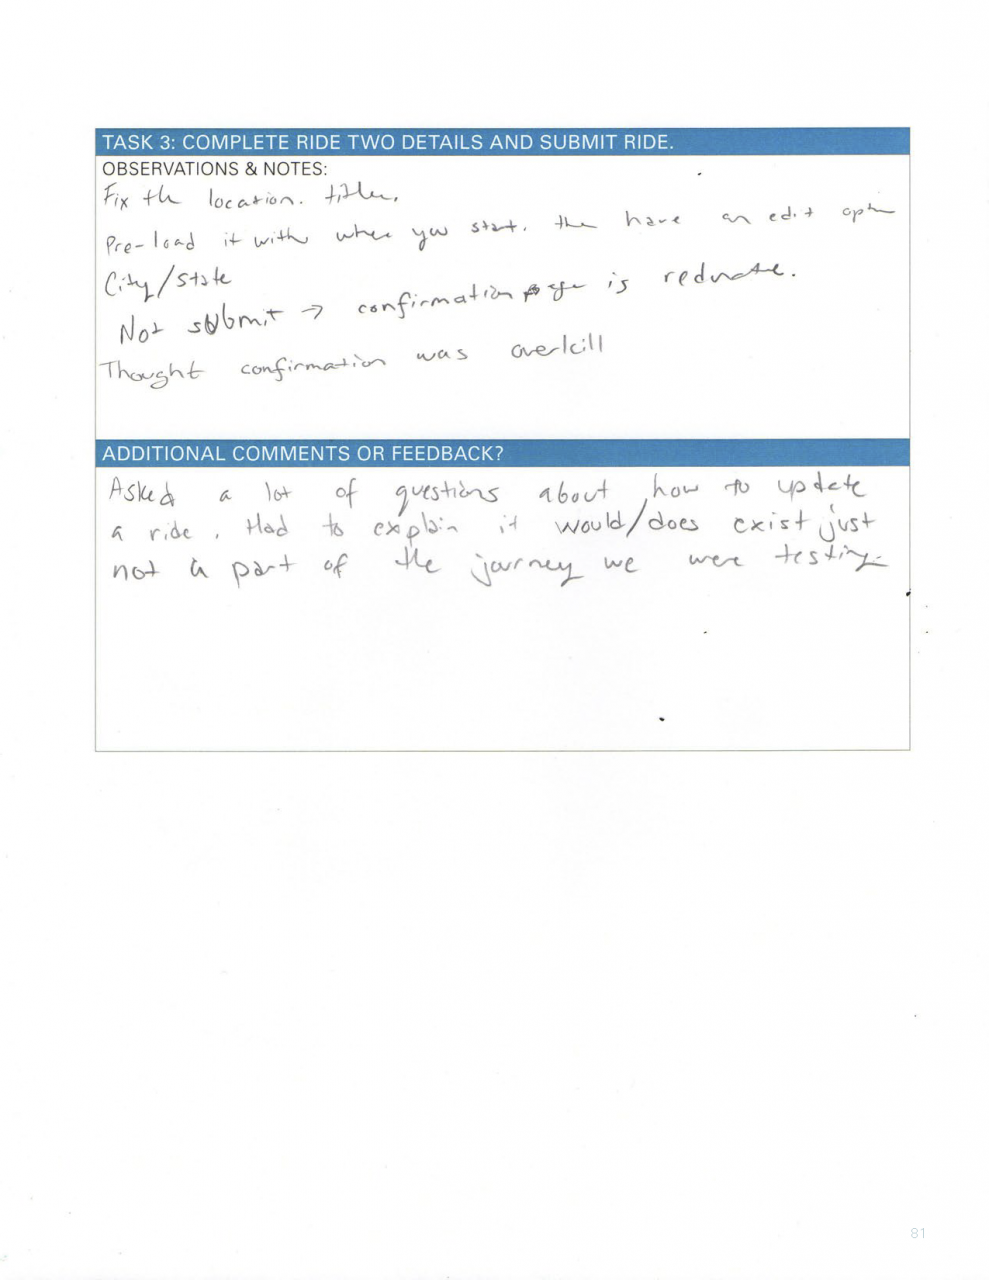 TASK 3: COMPLETE RIDE TWO DETAILS AND SUBMIT RIDE.
OBSERVATIONS & NOTES:
Fix the location. titles.
Pre-load it with where you start. then have an edit option
City/State
Not submit → confirmation page is
Thought confirmation was overkill
ADDITIONAL COMMENTS OR FEEDBACK?
Asked a lot of questions about how to update
a ride. Had to explain it would/does exist just
not a part of the journey we were testing.
81